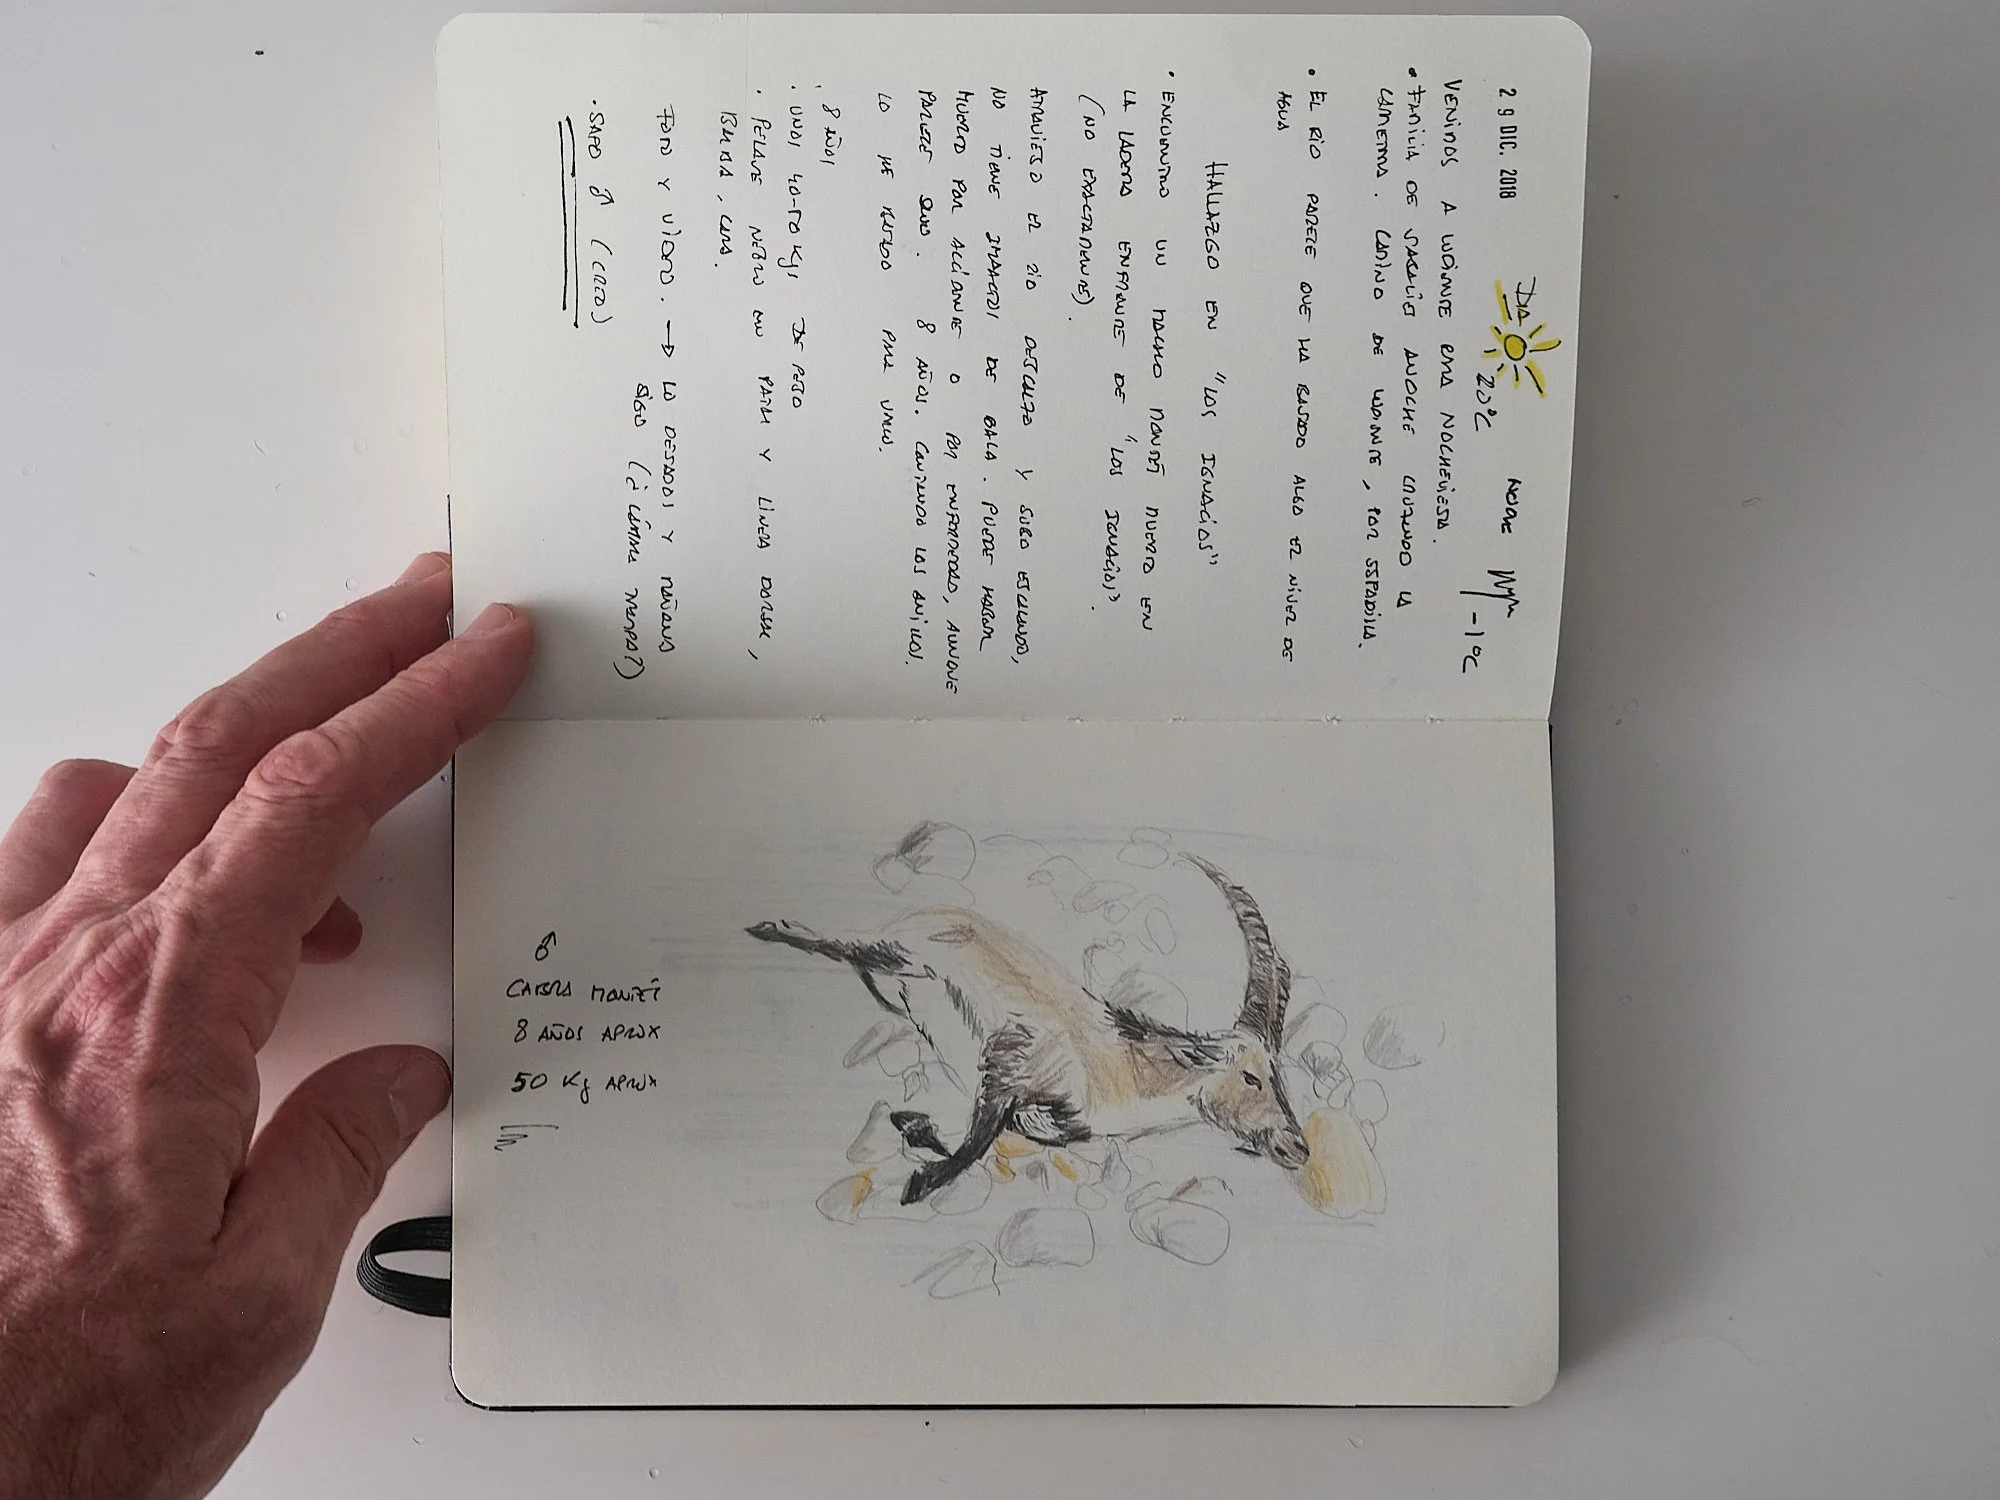 29 DIC. 2018
DIA 20°C NOCHE -1°C
VENIMOS A ESTA NOCHEVIEJA.
• FAMILIA DE ANOCHE CRUZANDO LA
CARRETERA. CAMINO DE , POR
• EL RÍO PARECE QUE HA BAJADO ALGO EL NIVEL DE
AGUA
HALLAZGO EN "LOS IGNACIOS"
• ENCUENTRO UN MACHO MONTÉS MUERTO EN
LA LADERA ENFRENTE DE "LOS IGNACIOS".
(NO EXACTAMENTE).
ATRAVIESO EL RÍO DESCALZO Y SUBO ESCALANDO,
NO TIENE IMPACTOS DE BALA. PUEDE HABER
MUERTO POR ACCIDENTE O POR ENFERMEDAD, AUNQUE
PARECE SANO. 8 AÑOS. CONTANDO LOS ANILLOS.
LO HE PARA
8 AÑOS
• UNOS 40-50 Kgs DE PESO
• PELAJE NEGRO EN PATA Y LINEA DORSAL,
BARBA, CARA.
FOTO Y VIDEO. → LO DEJAMOS Y MAÑANA
SIGO (¿CÁMARA TRAMPA?)
• SAPO ♂ (CRED)
♂
CABRA MONTÉS
8 AÑOS APROX
50 Kg APROX